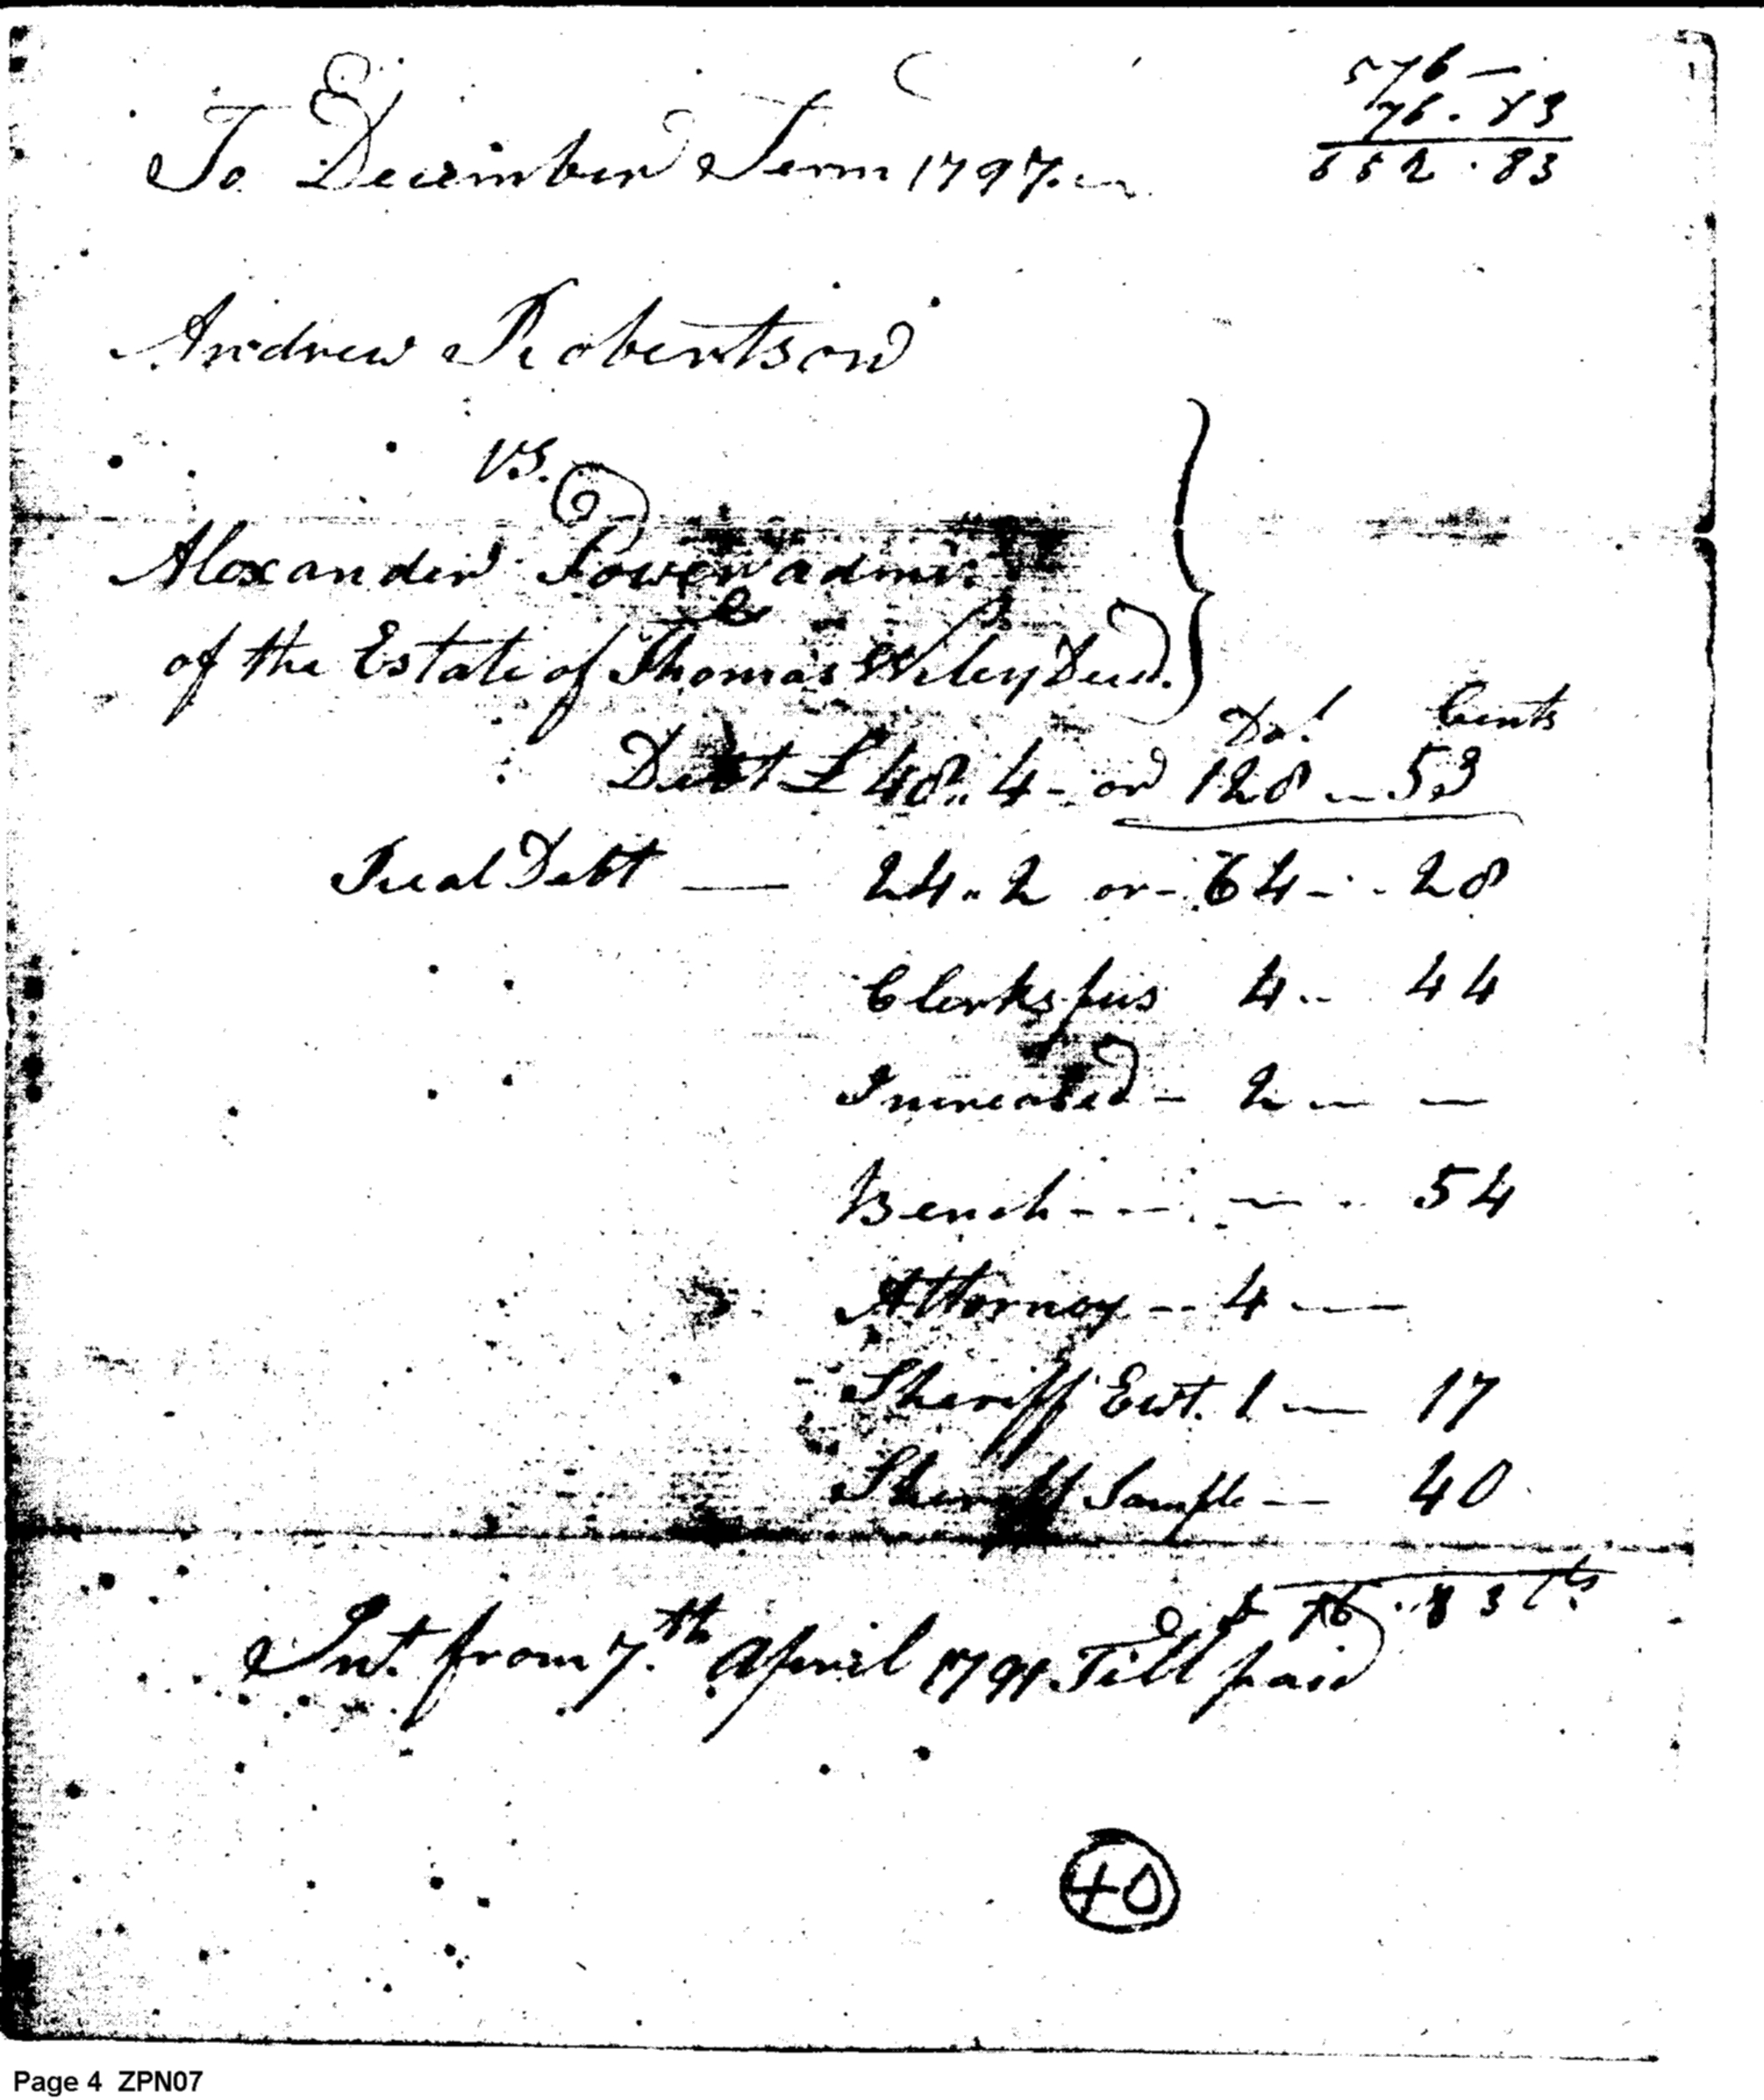 576 —
76 . 83
652 . 83
To December Term 1797.
Andrew Robertson
vs.
Alexander Power admr.
of the Estate of Thomas Wiley Decd.
Dol. Cents
Debt £ 48 „ 4 - or 128 — 53
Real Debt — 24 „ 2 or - 64 - - 28
Clerks fees 4 .. 44
Increased - 2 — —
Bench - - - — . 54
Attorney -- 4 —
Sheriff Ewt. 1 — 17
Sheriff Sample — 40
76 . 83 Cts
Int. from 7.th April 1791 Till paid
40
Page 4 ZPN07